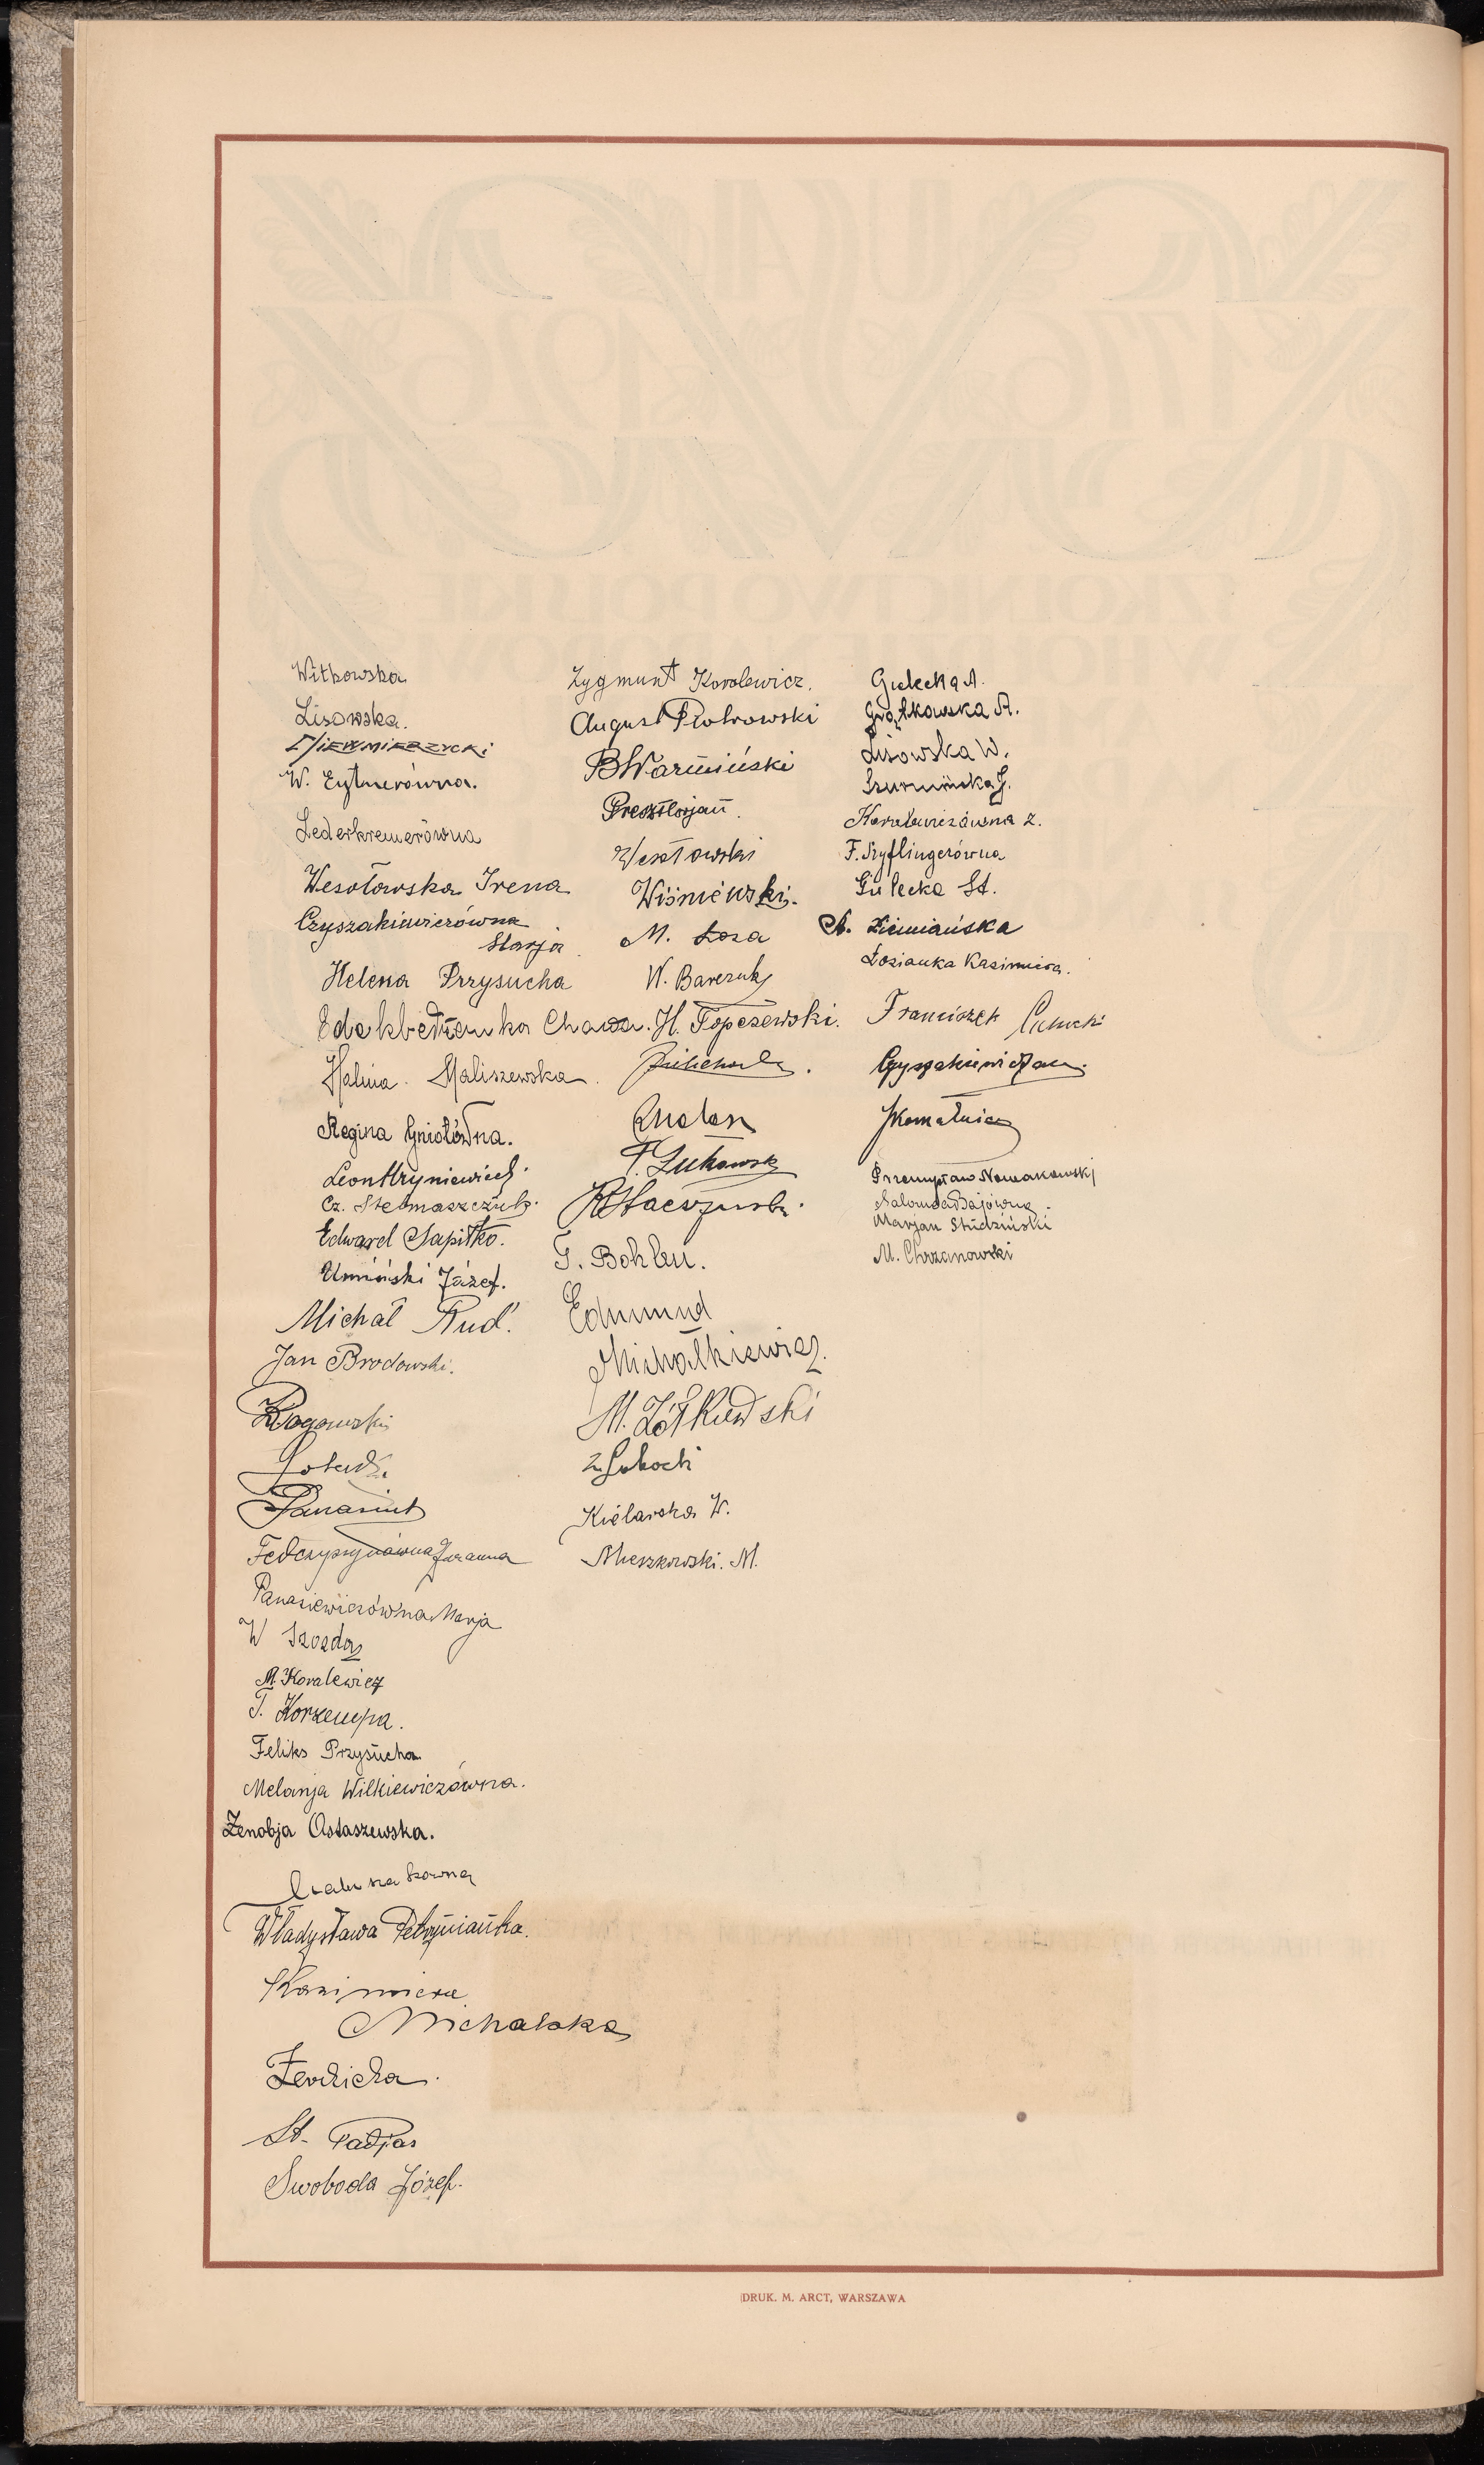 Witkowska
Lisowska.
Niewmierzycki
W. Eytnerówna.
Lederkremerówna
Wesołowska Irena
Czyszakiewiczówna
Marja
Helena Przysucha
Chawa.
Halina. Maliszewska.
Regina Gniotówna.
Leon Hryniewicz.
Cz. Stelmaszczuk.
Edward Sapitko.
Umiński Józef.
Michał Rud.
Jan Brodowski.
Rogowski
Panasiuk
Panasiewiczówna Marja
W Szozda
M. Koralewicz
T. Korzempa.
Feliks Przysucha
Melanja Wilkiewiczówna.
Zenobja Ostaszewska.
Władysława Petryniańka.
Kazimiera
Michalska
St. Padjas
Swoboda Józef.
Zygmunt Koralewicz.
August Piotrowski
B Warmiński
Wesołowski
Wiśniewski.
M. Łoza
W. Barczuk
H. Topczewski.
T. Żukowski
G. Bohlen.
Edmund
Michałkiewicz.
M. Żółkiewski
Z. Subocki
Kielarska W.
Mieszkowski. M.
Gulecka A.
Grątkowska A.
Lisowska W.
Szurmińska J.
Koralewiczówna Z.
F. Szyflingerówna
Gulecka St.
A. Ziemiańska
Łosianka Kazimiera.
Franciszek
Czyszakiewicz Jan.
Przemysław Nowakowski
Salomea Bajówna.
Marjan Studziński
M. Chrzanowski
DRUK. M. ARCT, WARSZAWA